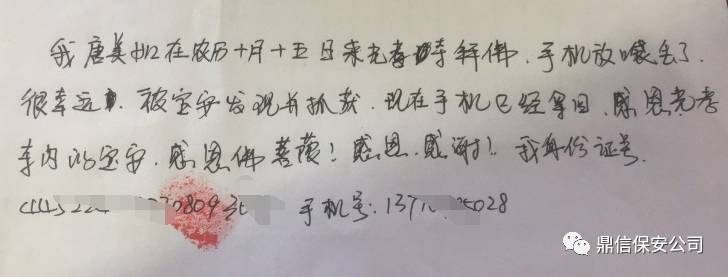 我唐美如在农历十月十五日来光孝寺拜佛，手机放哦丢了.
很幸运，被宝安发现并抓获.现在手机已经拿回.感恩光孝
寺内的宝安.感恩佛菩萨！感恩.感谢！.我身份证号.
手机号：137 5028
鼎信保安公司